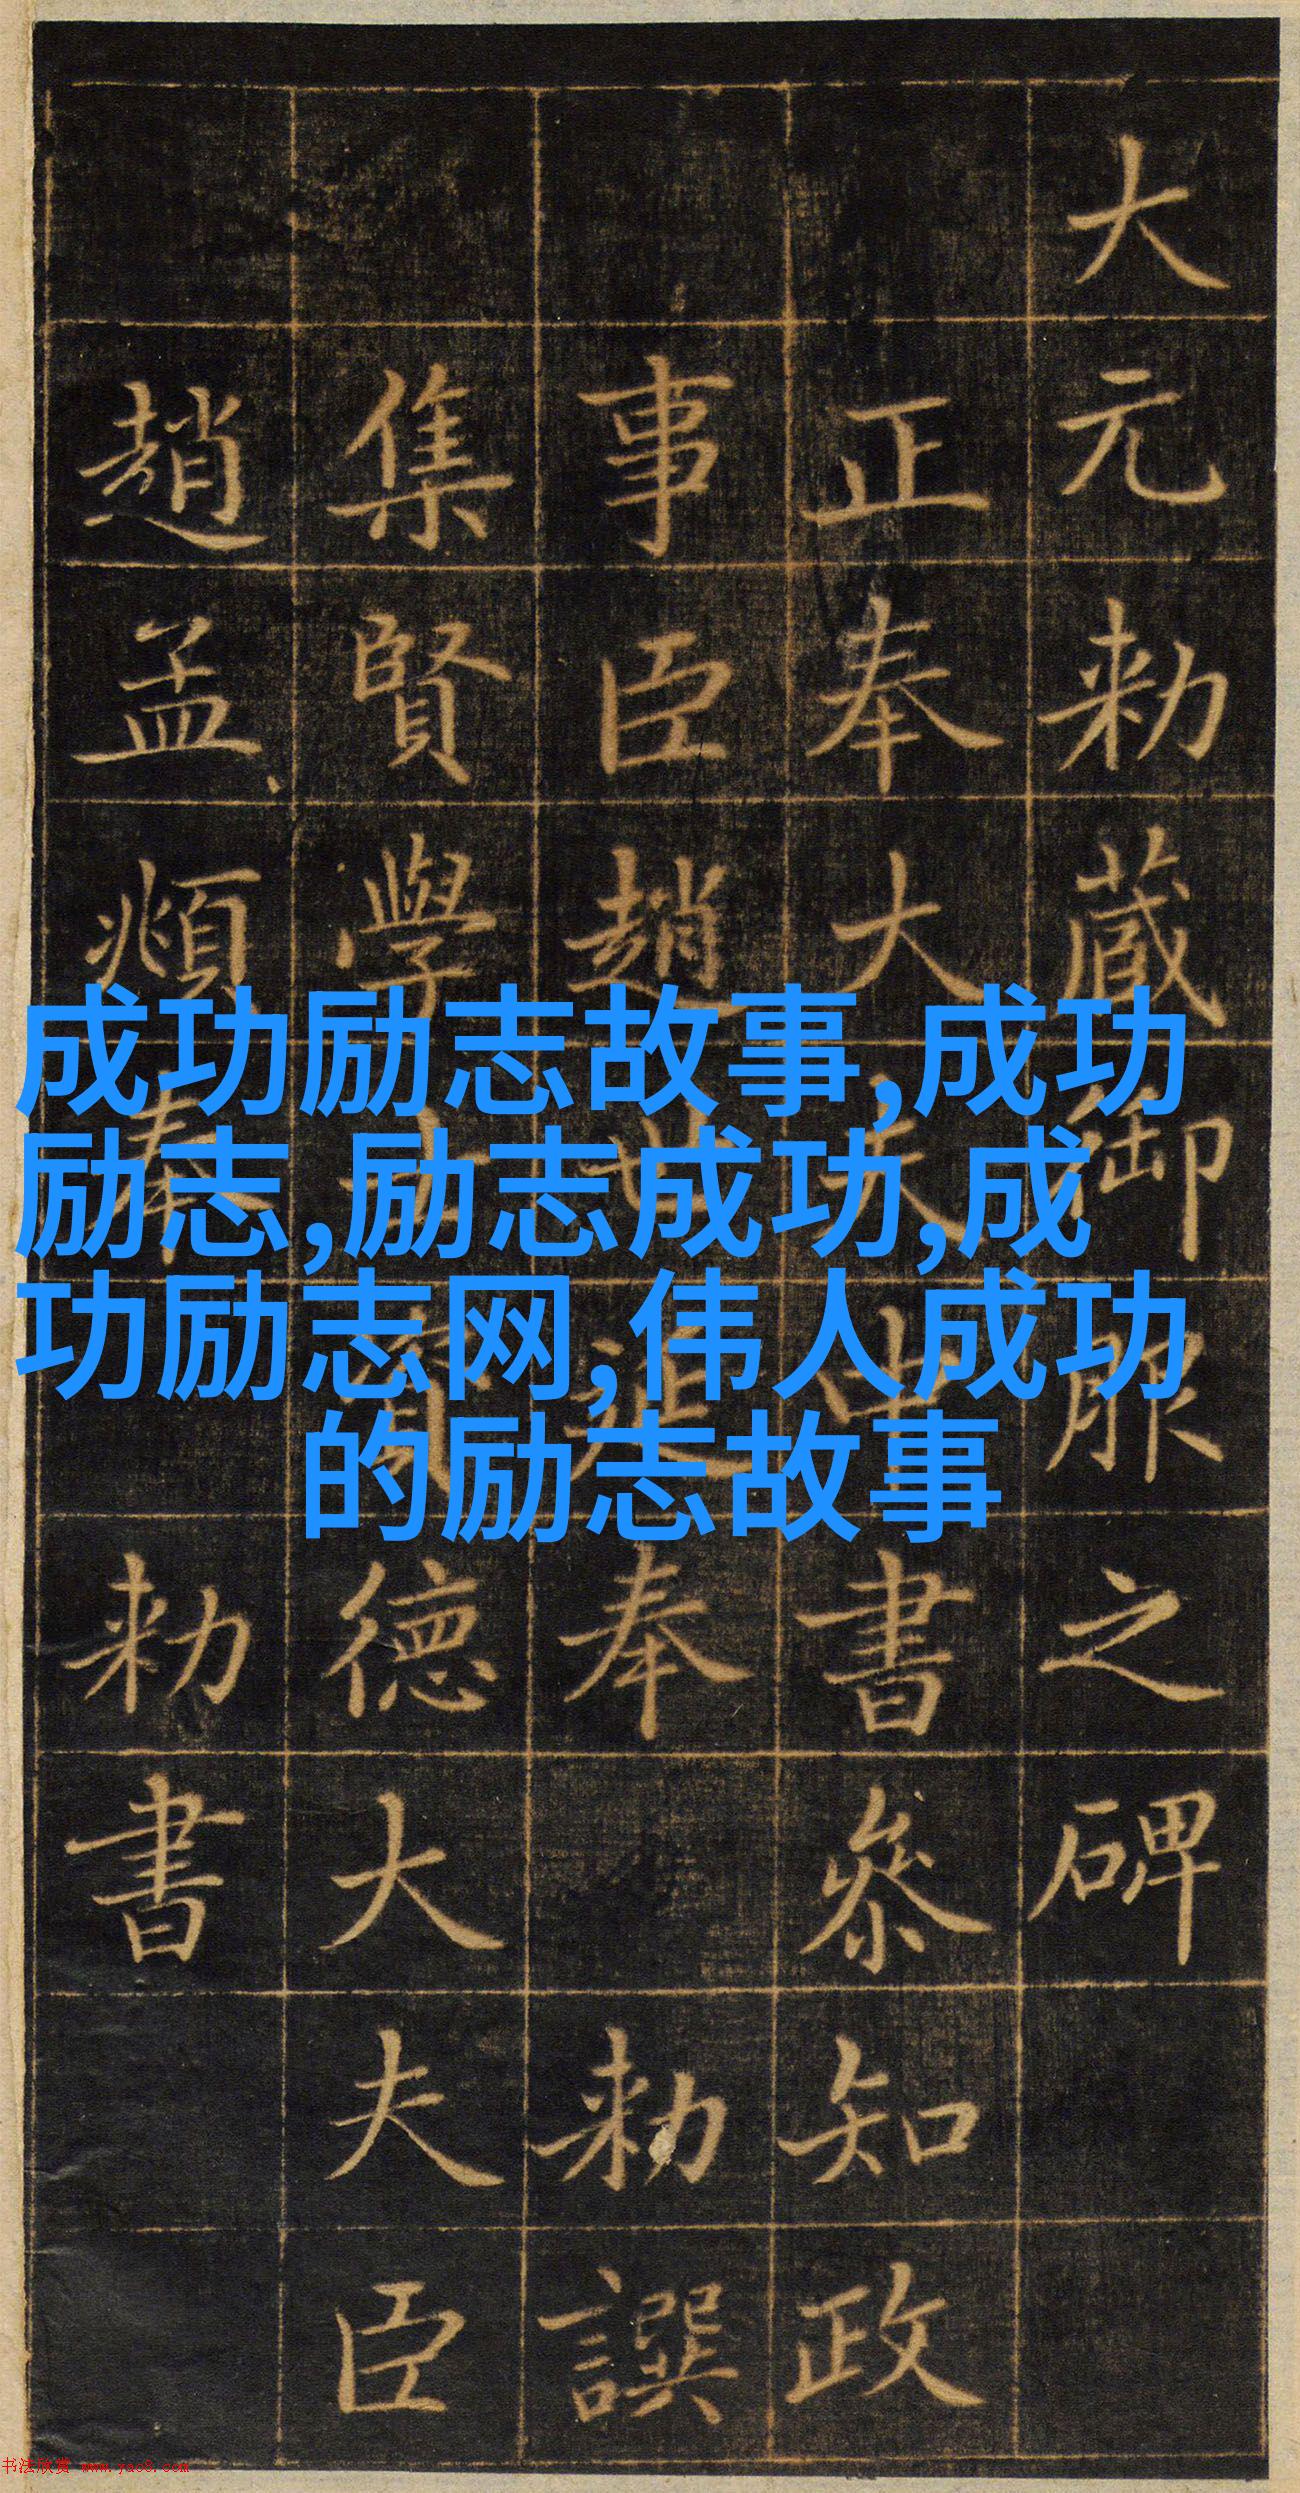 大元勑蔵御服之碑
正奉大夫中書叅知政
事臣趙世延奉勑譔
集賢學士資德大夫臣
趙孟頫奉勑書
成功励志故事,成功
励志,励志成功,成
功励志网,伟人成功
的励志故事
书法欣赏 www.yac8.com